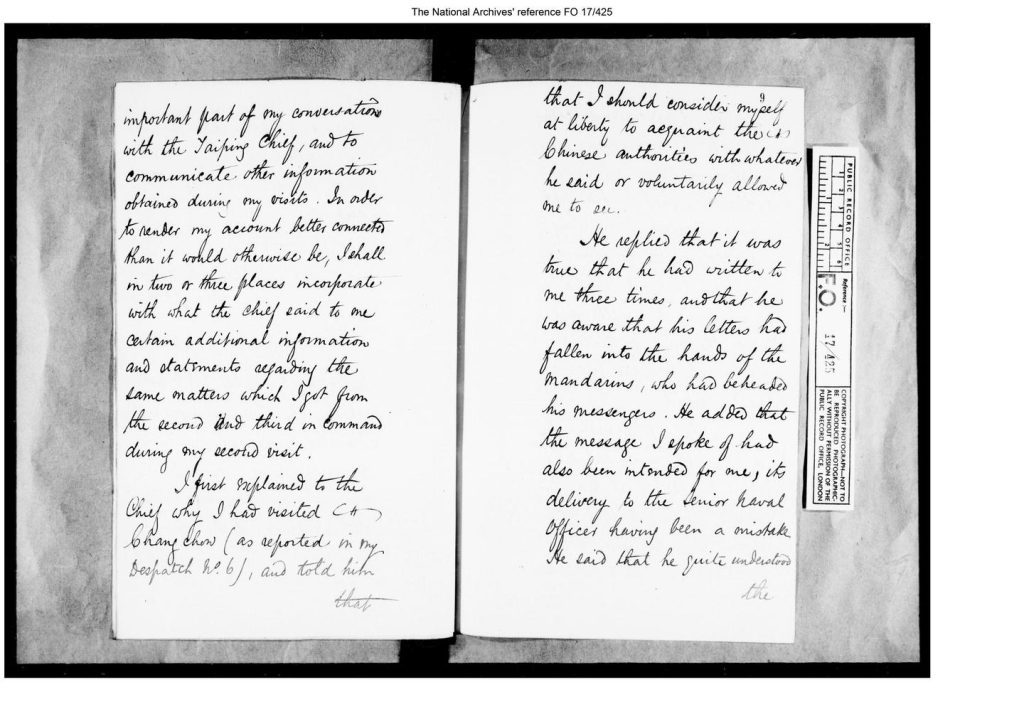 The National Archives' reference FO 17/425
important part of my conversations
with the Taiping Chief, and to
communicate other information
obtained during my visits. In order
to render my account better connected
than it would otherwise be, I shall
in two or three places incorporate
with what the Chief said to me
certain additional information
and statements regarding the
same matters which I got from
the second and third in command
during my second visit.
I first explained to the
Chief why I had visited
Chang chow (as reported in my
Despatch No. 6), and told him
that
9
that I should consider myself
at liberty to acquaint the
Chinese authorities with whatever
he said or voluntarily allowed
me to see.
He replied that it was
true that he had written to
me three times, and that he
was aware that his letters had
fallen into the hands of the
Mandarins, who had beheaded
his messengers. He added that
the message I spoke of had
also been intended for me, its
delivery to the Senior Naval
Officer having been a mistake
He said that he quite understood
the
PUBLIC RECORD OFFICE
1 2 3 4 5 6
Reference:-
F.O.
17/425
COPYRIGHT PHOTOGRAPH—NOT TO
BE REPRODUCED PHOTOGRAPHIC-
ALLY WITHOUT PERMISSION OF THE
PUBLIC RECORD OFFICE, LONDON